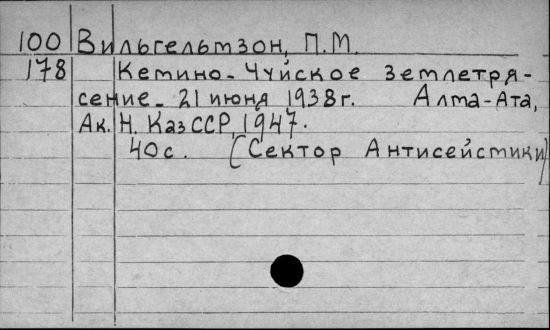 100 Вильгельмзон, П.М.
178 Кемино-Чуйское землетря-
сение. 21 июня 1938г. Алма-Ата,
Ак. Н. КазССР, 1947.
40с. (Сектор Антисейсмики)